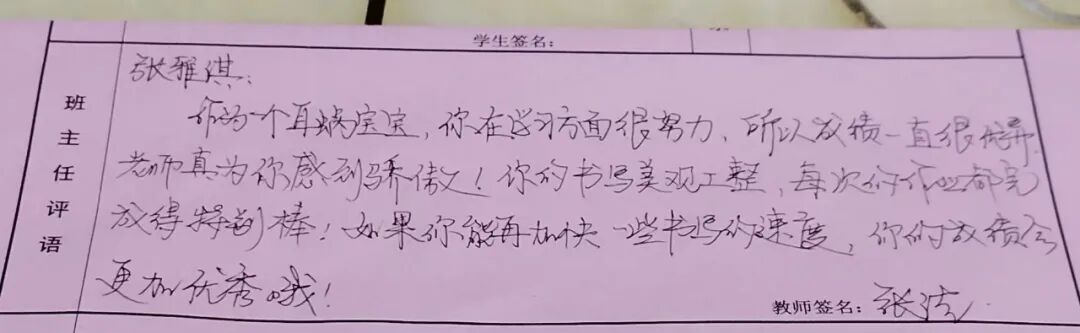 学生签名:
班主任评语
张雅淇:
作为一个耳蜗宝宝,你在学习方面很努力,所以成绩一直很优异,
老师真为你感到骄傲!你的书写美观工整,每次的作业都完
成得特别棒!如果你能再加快一些书写的速度,你的成绩会
更加优秀哦!
教师签名:张